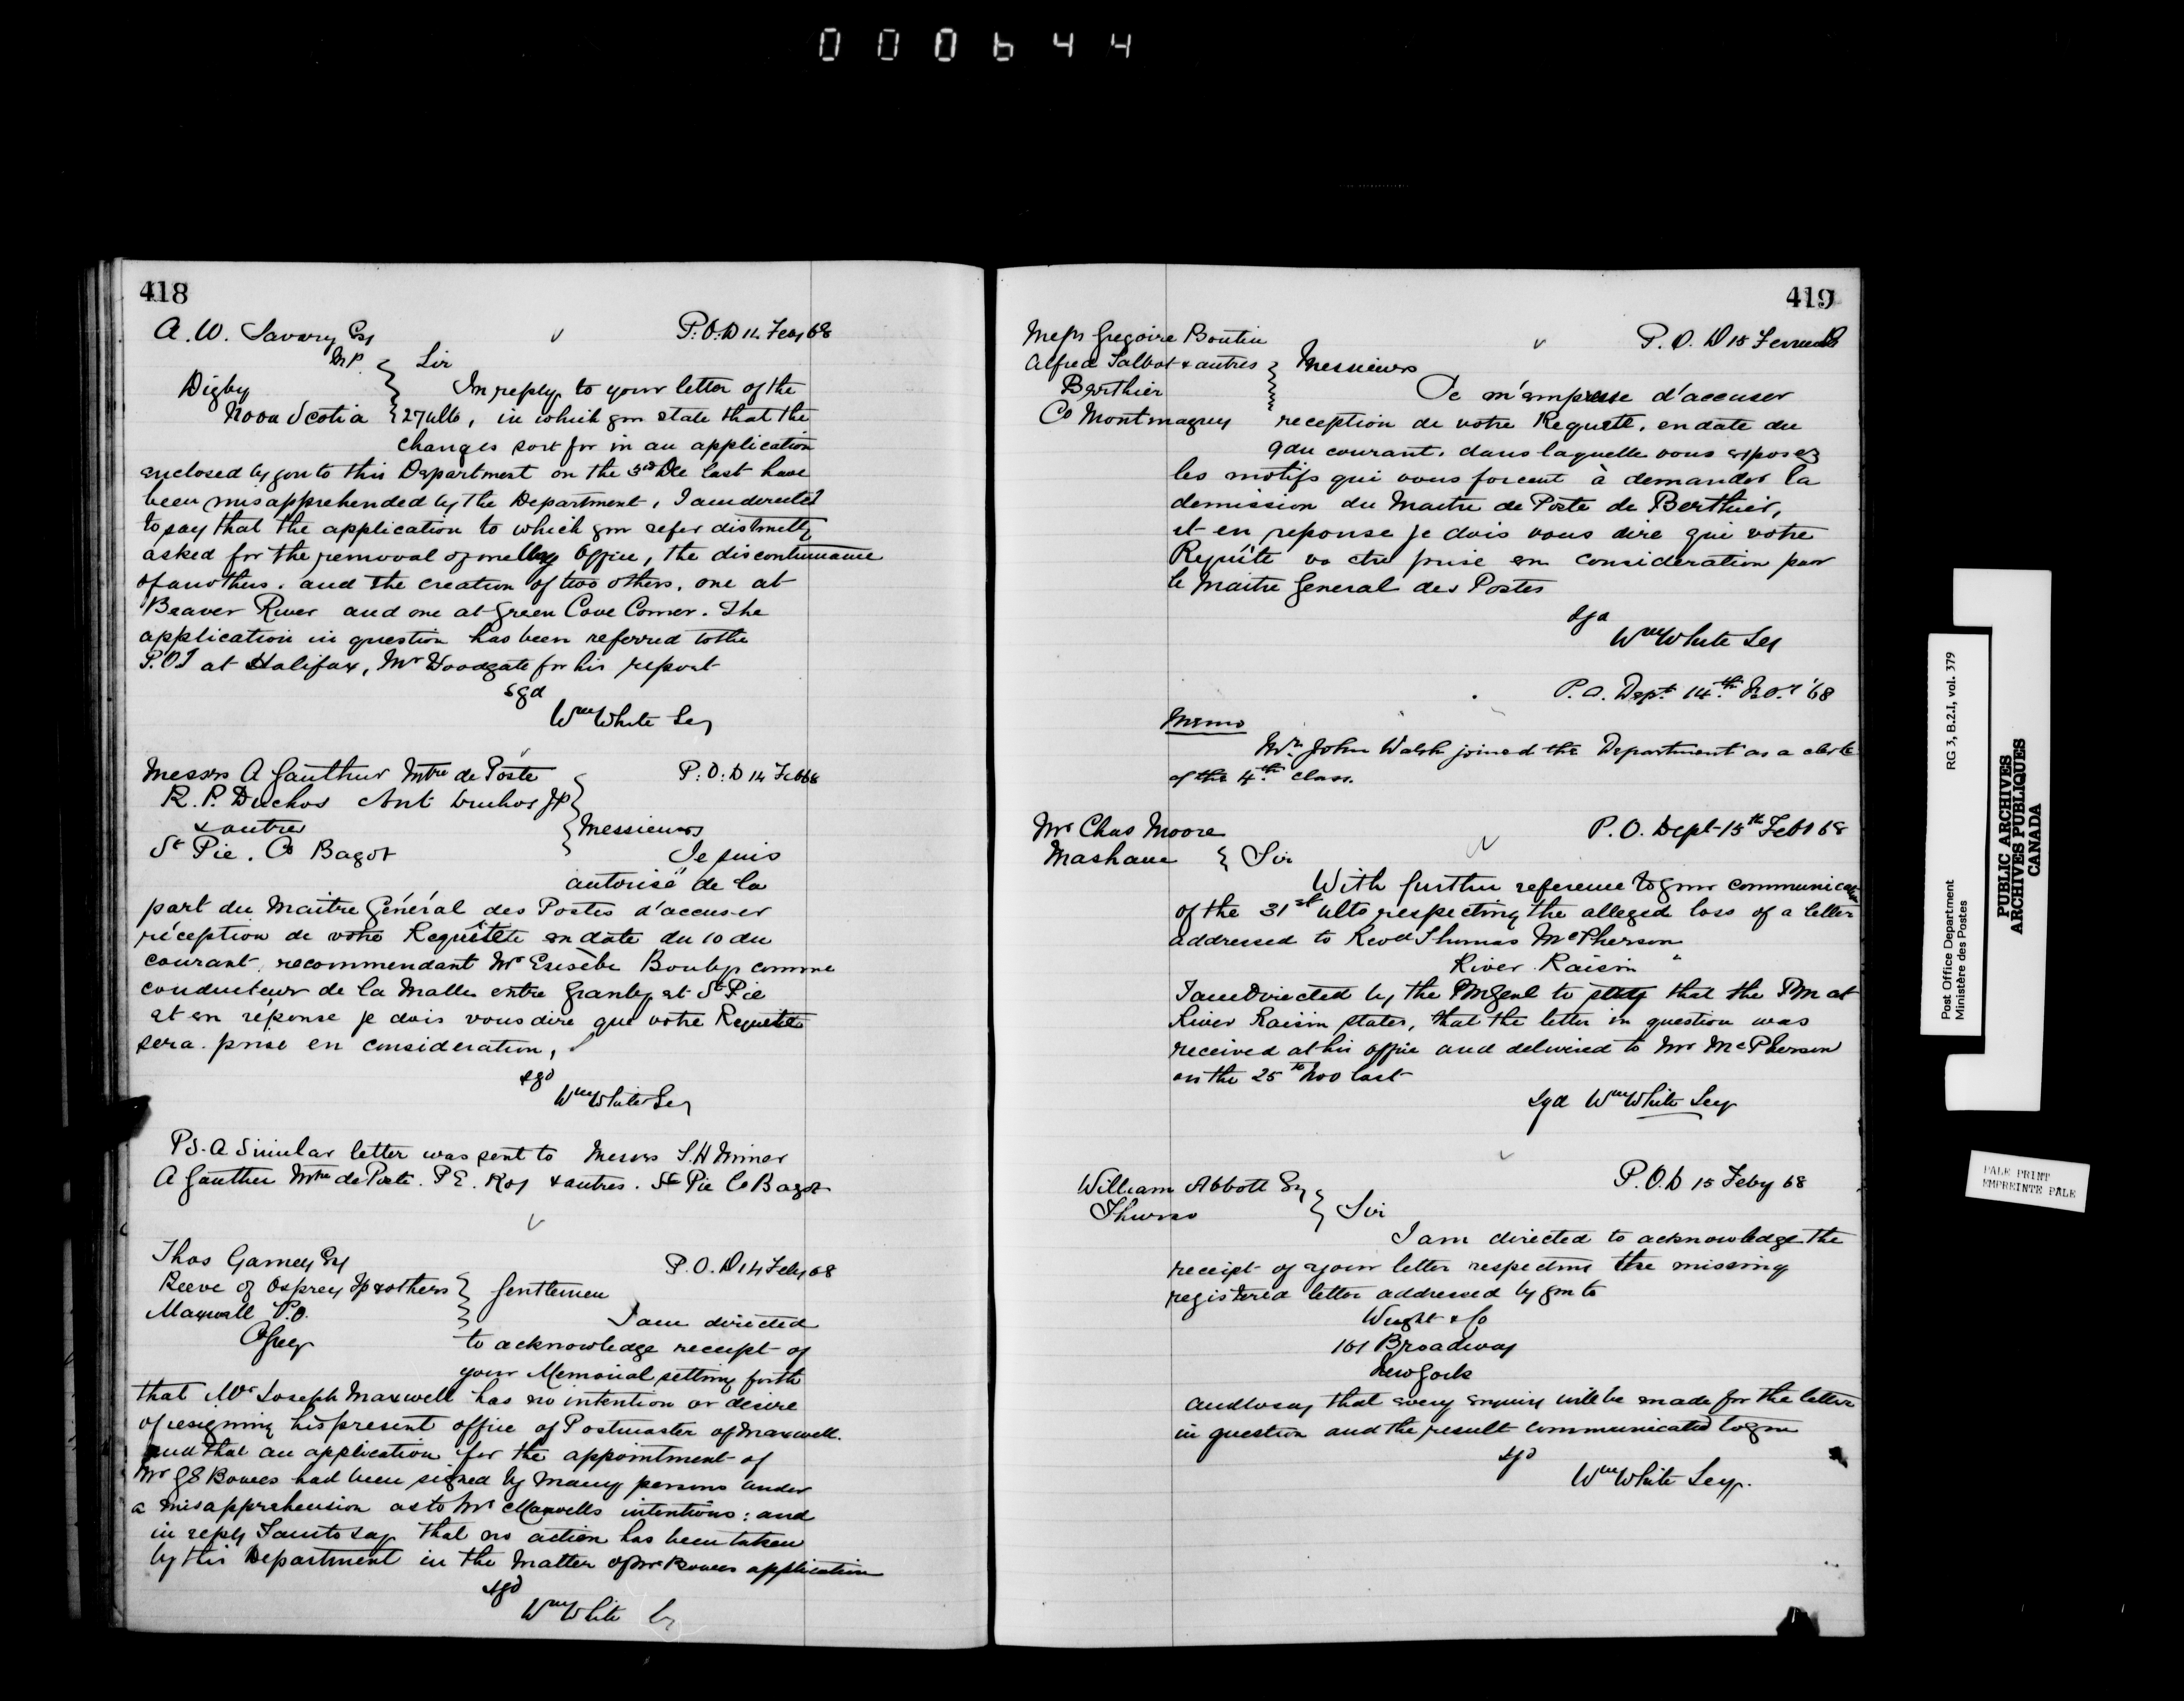 000644
418
A. W. Savary Esq
M.P.
Digby
Nova Scotia
P.O.D 14 Feby 68
Sir
In reply to your letter of the
27 ulto, in which you state that the
changes sort for in an application
enclosed by you to this Department on the 3rd Dec last have
been misapprehended by the Department, I am directed
to say that the application to which you refer distinctly
asked for the removal of one Office, the discontinuance
of another, and the creation of two others, one at
Beaver River and one at Green Cove Corner. The
application in question has been referred to the
P.O.I at Halifax, Mr Woodgate for his report
sgd
Wm White Secy
Messrs A Gauthier Mtre de Poste
R. P. Duchos Ant Duchos JP
& autres
St Pie. Co Bagot
P.O.D 14 Feb 68
Messieurs
Je suis
autorisé de la
part du Maitre Général des Postes d'accuser
réception de votre Requête en date du 10 du
courant, recommendant Mr Esisèbe comme
conducteur de la Malle entre Granby et St Pie
et en réponse je dois vous dire que votre Requete
sera prise en consideration,
sgd
Wm White Secy
PS. A Similar letter was sent to Messrs S. H Minor
A Gauthier Mtre de Poste. P E. Roy & autres. St Pie Co Bagot
Thos Gamey Esq
Reeve of Osprey Tp & others
Maxwell P.O.
Co Grey
P.O.D 14 Feby 68
Gentlemen
I am directed
to acknowledge receipt of
your Memorial setting forth
that Mr Joseph Maxwell has no intention or desire
of resigning his present office of Postmaster of Maxwell.
and that an application for the appointment of
Mr G E Bowes had been signed by many persons under
a misapprehension as to Mr Maxwells intentions: and
in reply I am to say that no action has been taken
by this Department in the matter of Mr Bowes application
sgd
Wm White Secy
419
Messrs Gregoire Boutin
Alfred Talbot & autres
Berthier
Co Montmagny
P.O.D 15
Messieurs
Je m'empresse d'accuser
reception de votre Requete, en date du
9 du courant, dans laquelle vous exposez
les motifs qui vous forcent à demander la
demission du Maitre de Poste de Berthier,
et en reponse je dois vous dire que votre
Requête va etre prise en consideration par
le Maitre General des Postes
sgd
Wm White Secy
P.O. Dept 14th '68
Memo
Mr John Walsh joined the Department as a clerk
of the 4th class.
Mr Chas Moore
Masham
P.O. Dept 15th Feby 68
Sir
With further reference to your communication
of the 31st ulto respecting the alleged loss of a letter
addressed to Revd Thomas McPherson
River Raisin
I am Directed by the PMGenl to state that the PM at
River Raisin states, that the letter in question was
received at his office and delivered to Mr McPherson
on the 25th Nov last
Sgd Wm White Secy
William Abbott Esq
Thurso
P.O.D 15 Feby 68
Sir
I am directed to acknowledge the
receipt of your letter respecting the missing
registered letter addressed by you to
Wright & Co
161 Broadway
New York
and to say that every enquiry will be made for the letter
in question and the result communicated to you
sgd
Wm White Secy.
Post Office Department
Ministère des Postes
RG 3, B.2.I, vol. 379
PUBLIC ARCHIVES
ARCHIVES PUBLIQUES
CANADA
PALE PRINT
EMPREINTE PALE